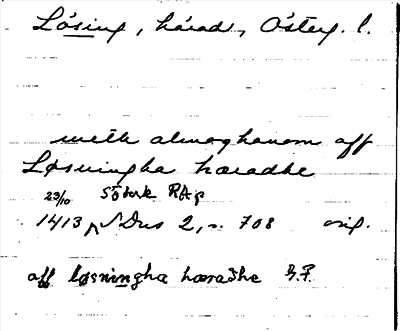 Lösing, härad, Österg. l.
meth almoghanom aff
Løsningha hæradhe
23/10 Sthlm RAp
1413 SDns 2, n. 708 orig.
aff løsningha hæradhe B.F.